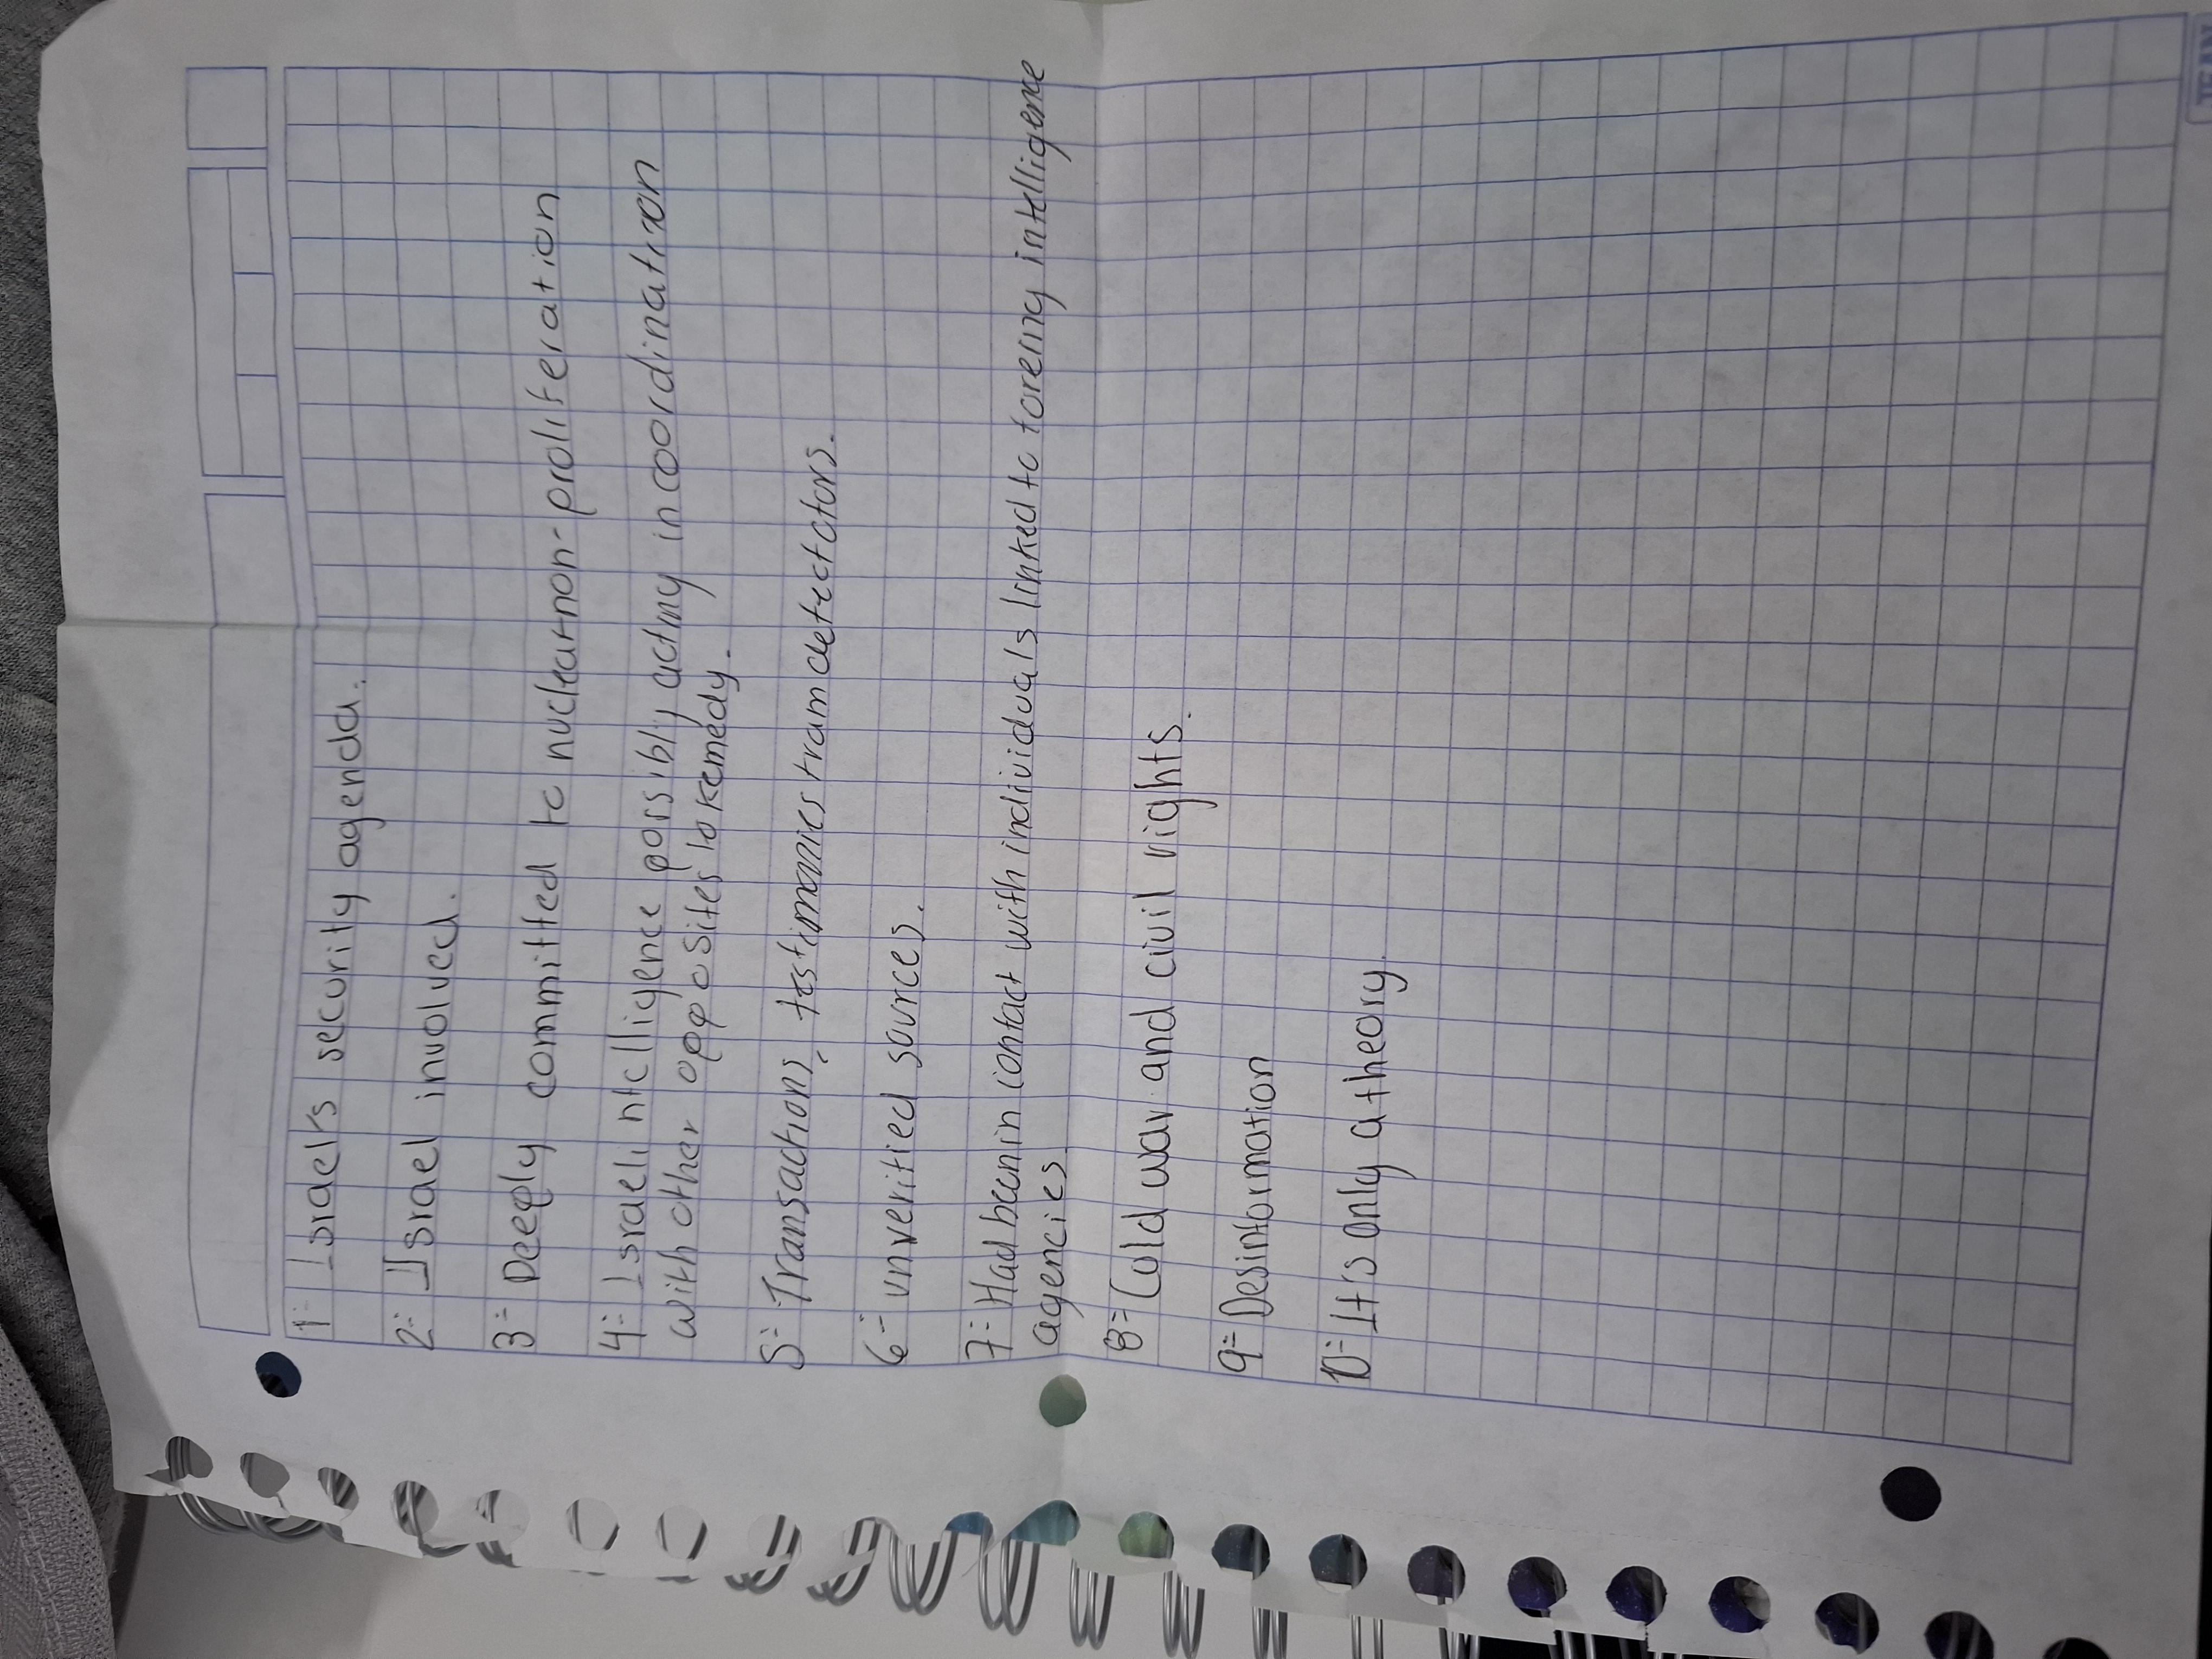 1- Israel's security agenda.
2- Israel involved.
3- Deeply committed to nuclear non-proliferation
4- Israeli intelligence possibly acting in coordination
with other opposites to kemedy.
5- Transactions, testimonies fram detectators.
6- unverified sources.
7- Had been in contact with individuals linked to foreing intelligene
agencies.
8- Cold war and civil rights.
9- Desinformation
10- It's only a theory.